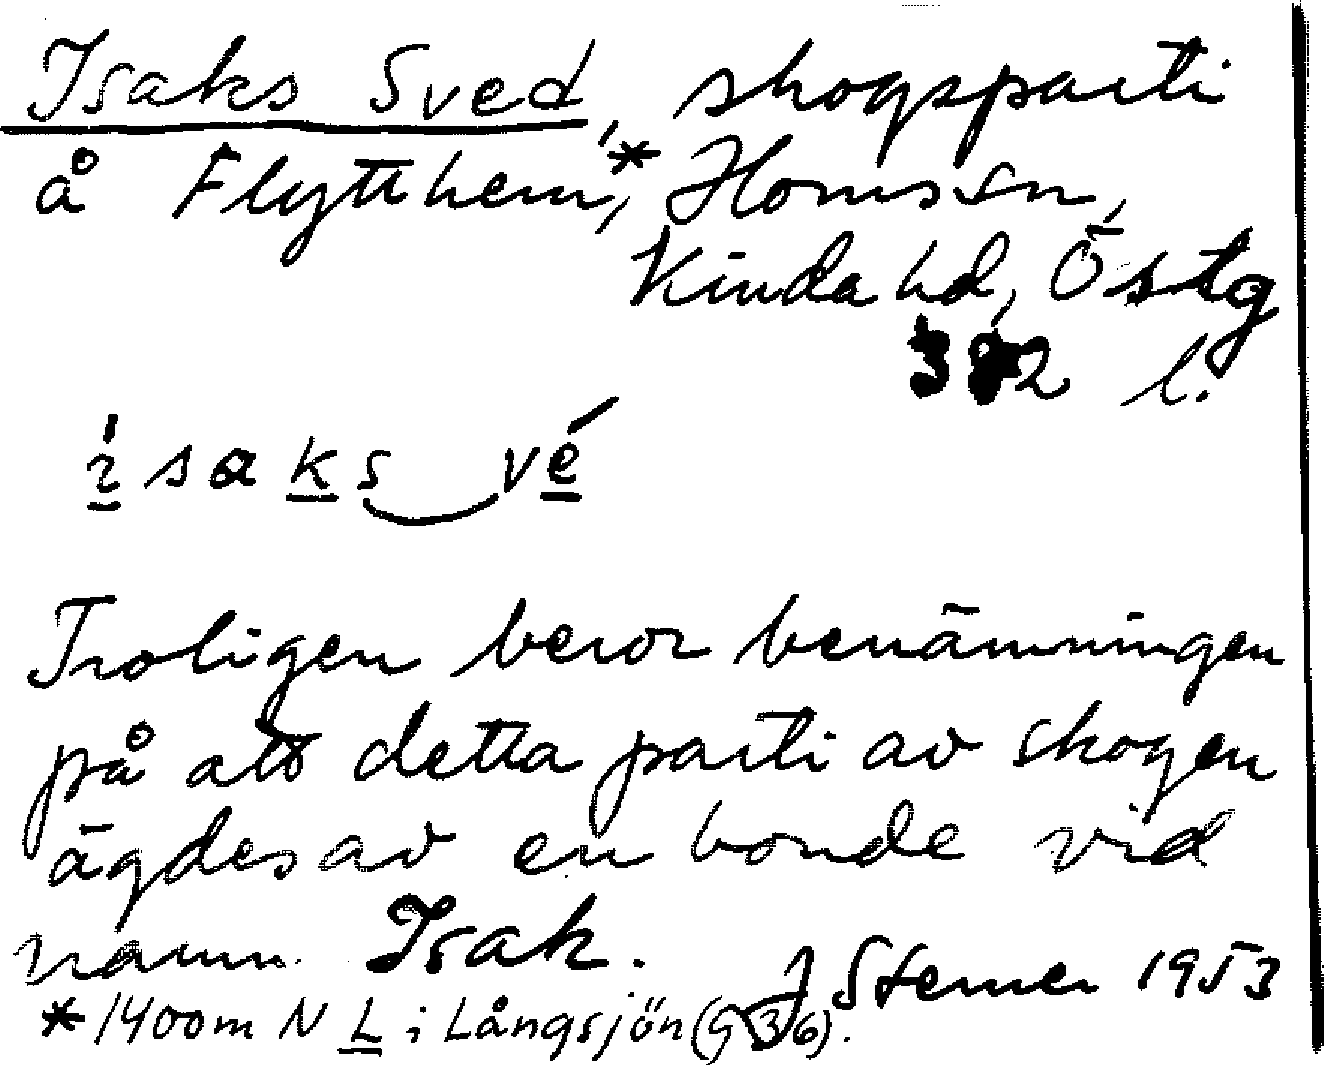 Isaks Sved, skogsparti
å Flytthem,* Hons sn,
Kinda hd, Östg
l.
ísaks vé
Troligen beror benämningen
på att detta parti av skogen
ägdes av en bonde vid
namn Isak.
J Sterner 1953
* 1400m N L i Långsjön (G 36).